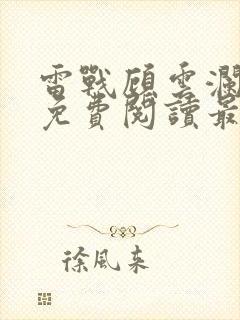 雷戰顧雲瀾
免費閱讀最
徐風來